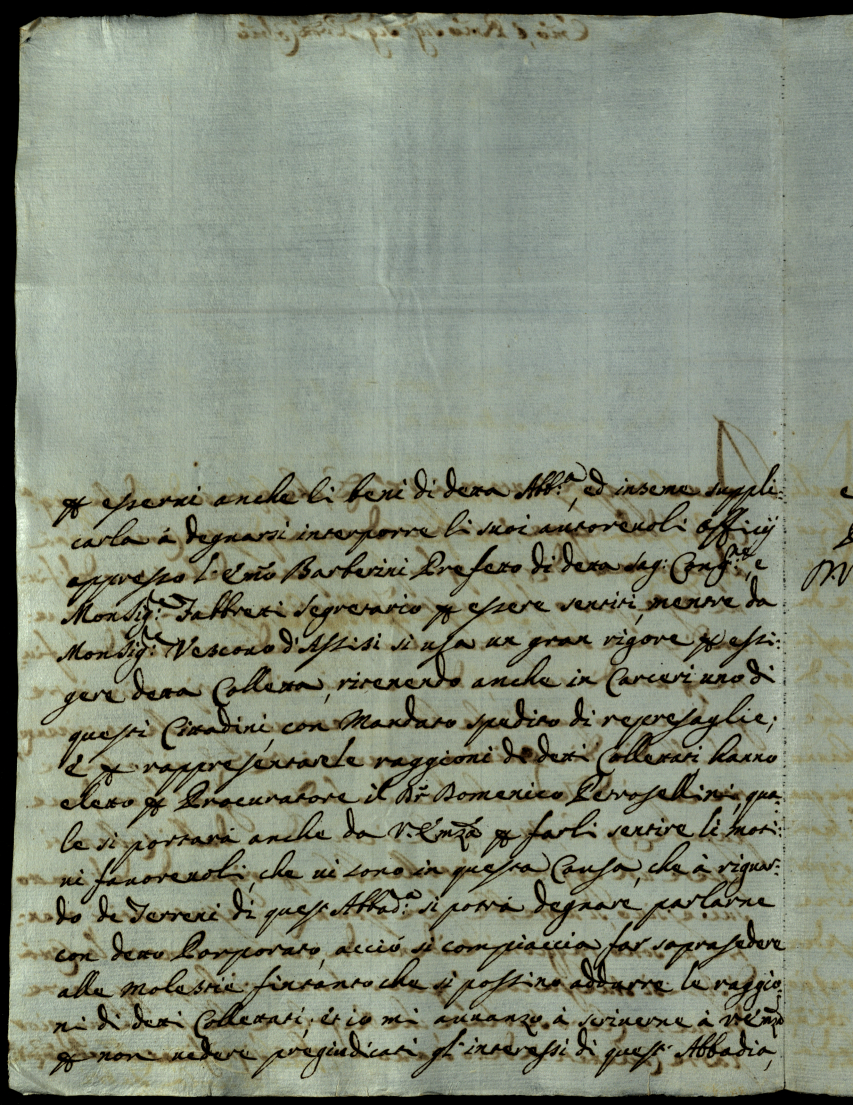 ꝑ esserui anche li beni di detta Abb.ª, ed inseme suppli:
carla à degnarsi interporre li suoi autoreuoli officij
appresso l'Em̃o Barberini Prefetto di detta Sag: Cong:ne, e
Monsig.r Fabbretti Segretario ꝑ essere sentiti, mentre da
Monsig.r Vescouo d'Assisi si usa un gran rigore ꝑ esi:
gere detta Colletta, ritenendo anche in Carceri uno di
questi Cittadini, con Mandato spedito di represaglie;
E ꝑ rappresentare le raggioni di detti Collettati hanno
eletto ꝑ Procuratore il Dr Domenico Petrosellini qua:
le si portarà anche da V. Em̃za ꝑ farli sentire li moti:
ui fauoreuoli, che ui sono in questa Causa, che à riguar:
do de Terreni di quest' Abbad.ª si potrà degnare parlarne
con detto Porporato, acciò si compiaccia far soprasedere
alle molestie fintanto che si possino addurre le raggio:
ni di detti Collettati; et io mi auuanzo à scriuerne à V. Em̃za
ꝑ non uedere pregiudicati gl'interessi di quest' Abbadia,